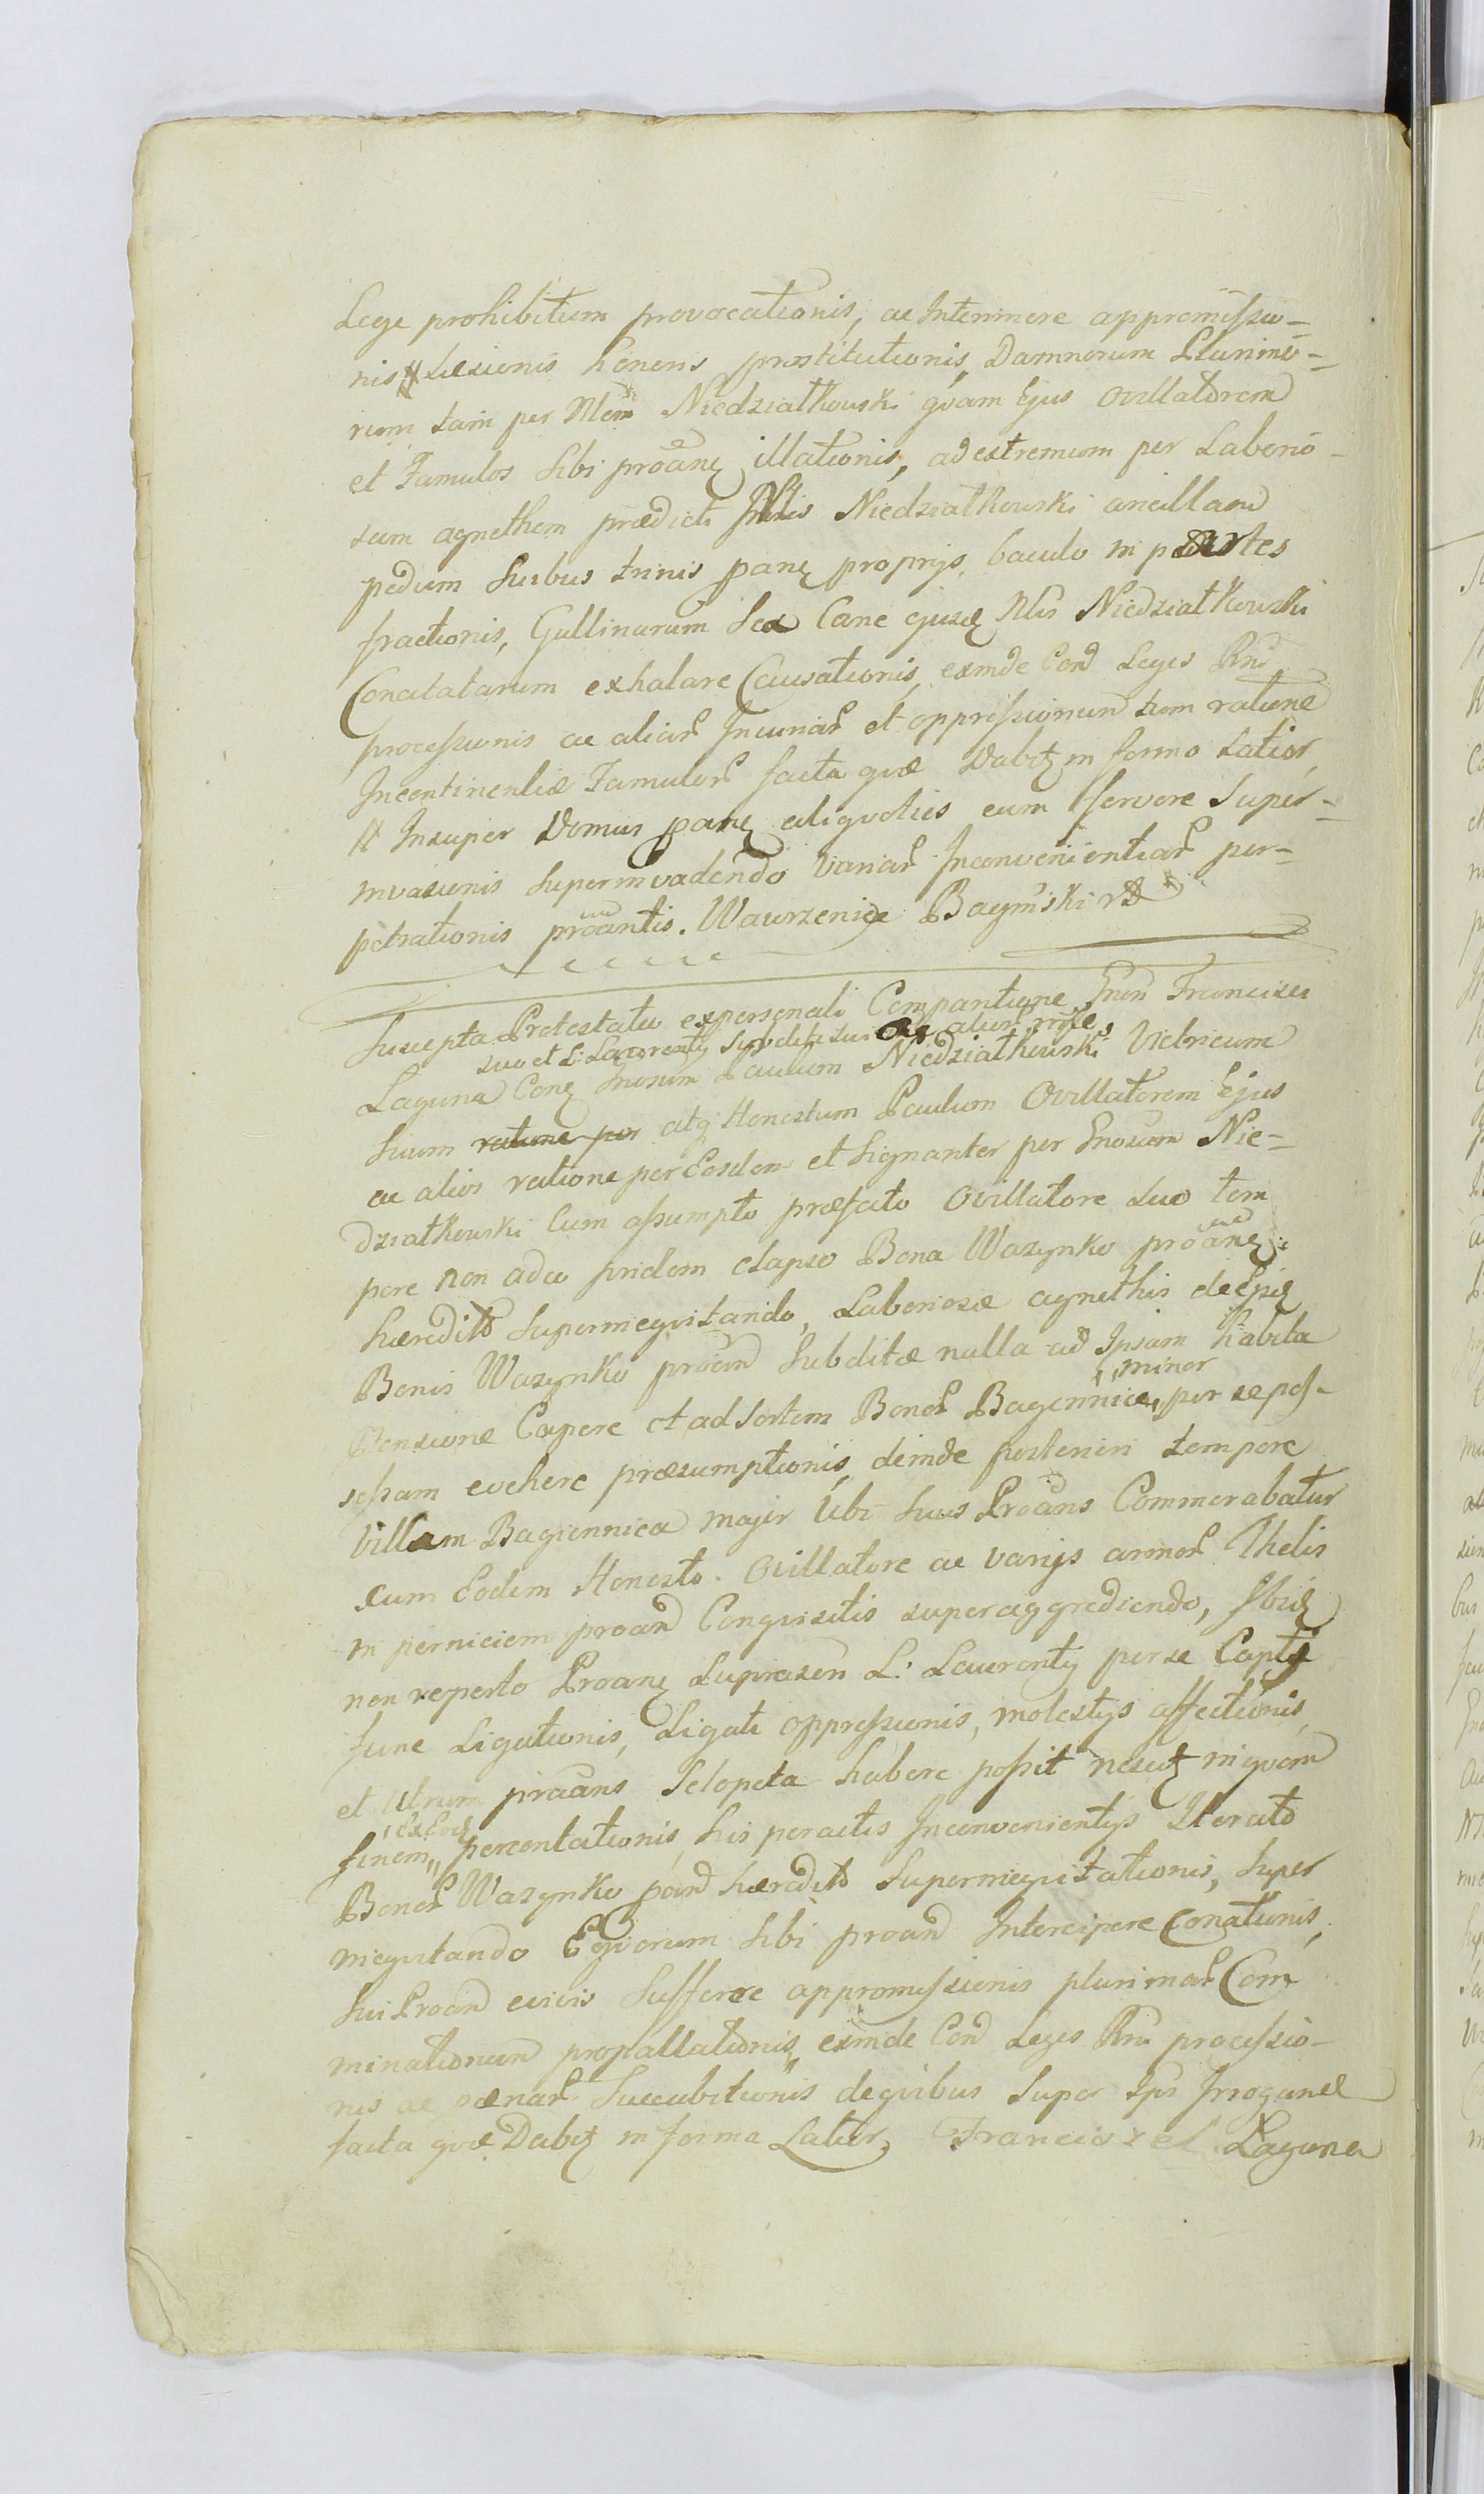 Lege prohibitum provocationis, ac Interimere appromissio-
nis Læsionis honeris prostitutionis, Damnorum Plurimo-
rum tam per Nlem Niedziałkowski qvam Ejus Ovillatorem
et Famulos Sibi proanẽ illationis, ad extremum per Laborio-
sam agnethem prædicti Nlis Niedziałkowski ancillam
pedum Suibus trinis panẽ proprys, baculo in partes
fractionis, Gallinarum Sex Cane ejusd Nlis Niedziałkowski
Concitatarum exhalare Causationis, exinde Con Leges Rni
processionis ac aliar Iniuriar et oppressionum tum ratione
Incontinentiæ Famulor facta qvæ Dabit in formo Latior,
Insuper Domus panẽ aliqvoties cum fervore Super-
invasionis Superinvadendo Variar Inconvenientiar per-
petrationis proantis. Wawrzeniec Bagiński
Suscepta Protestatio ex personali Comparitione Gnsi Francisci
suo et L: Laurenty Subditi sui ac alior nõe
Laguna Conẽ Gnosum Paulum Niedziałkowski Vitricum
Suum ratione per atq Honestum Paulum Ovillatorem Ejus
ac alios ratione per Eosdem et Signanter per Gnosum Nie-
działkowski Cum assumpto præfato Ovillatore Suo tem
pore non adeo pridem elapso Bona Wazynko proanẽ
hæredit Superineqvitando, Laboriosæ agnethis de Ejsd
Bonis Wazynko proan Subditæ nulla ad Ipsam habita
minor
Pensione Capere et ad Sortem Bonor Bagiennice, per se pos-
sessam evehere præsumptionis, deinde posteriori tempore
Villam Bagiennica major Ubi Suus Proans Commorabatur
cum Eodem Honesto Ovillatore ac varys armor Thelis
in perniciem proan Conqvisitis superaggrediendo, Ibid
non reperto Proanẽ Suprasen L: Laurenty per se Capti
fune Ligationis, Ligati oppressionis, molestys affectionis,
et Utrum proans Sclopeta habere possit in qvem
finem, percontationis, his peractis Inconvenientys Iterato
Bonor Wazynko pan hæredit Superineqvitationis, Super
ineqvitando Eqvorum Sibi proan Intercipere Conationis,
Sui Proan Sufferre appromissionis plurimar Com
minationum propallationis, exinde Con Leges Rni processio-
nis ac pænar Succubitionis de qvibus Super Ips Irrogane
facta qvæ Dabit in forma Latior, Franciszek Laguna